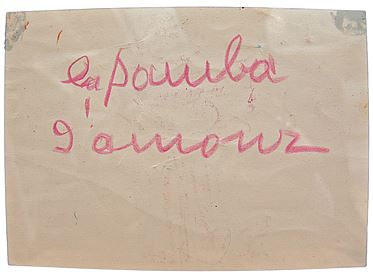 la pamba
d'amour